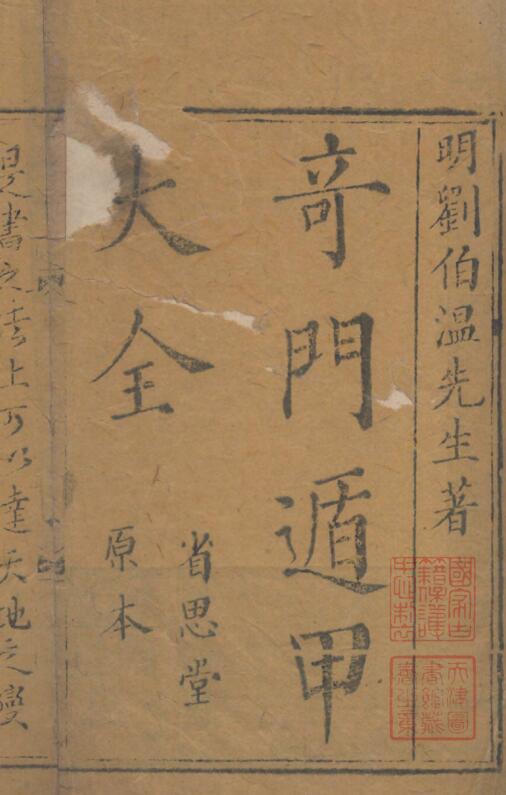 明劉伯温先生著
奇門遁甲
大全
省思堂
原本
是書之法上可以達天地之變
國家古籍保護中心制
天津圖書館藏